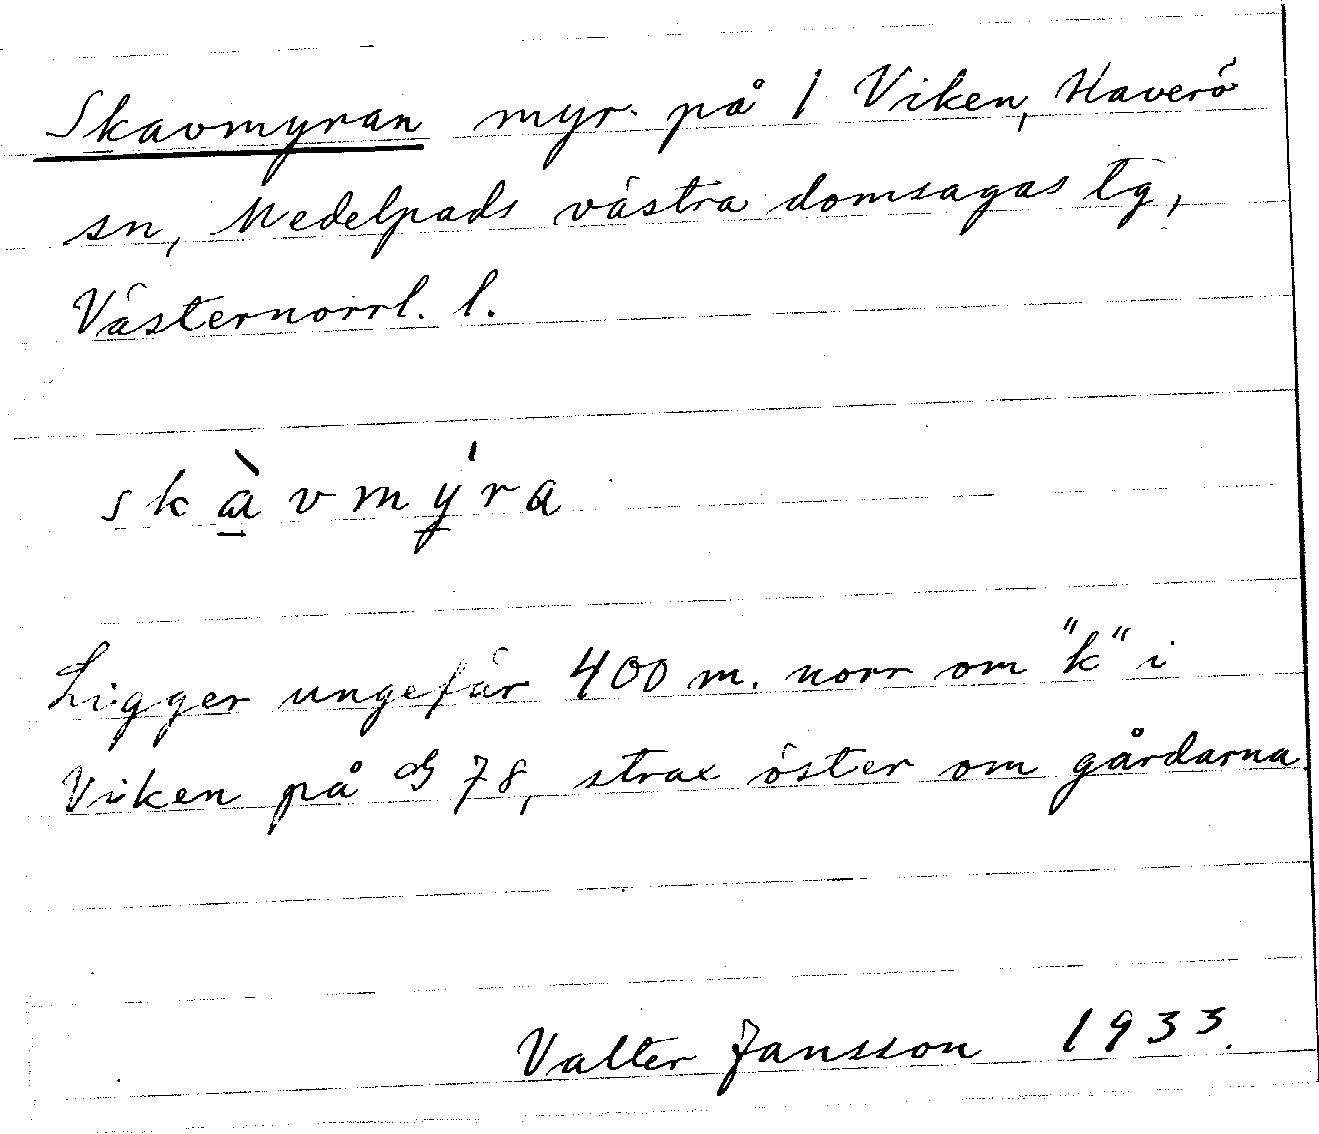 Skavmyran myr på 1 Viken, Haverö
sn, Medelpads västra domsagas tg,
Västernorrl. l.
skàvmýra
Ligger ungefär 400 m. norr om "k" i
Viken på G 78, strax öster om gårdarna.
Valter Jansson 1933.